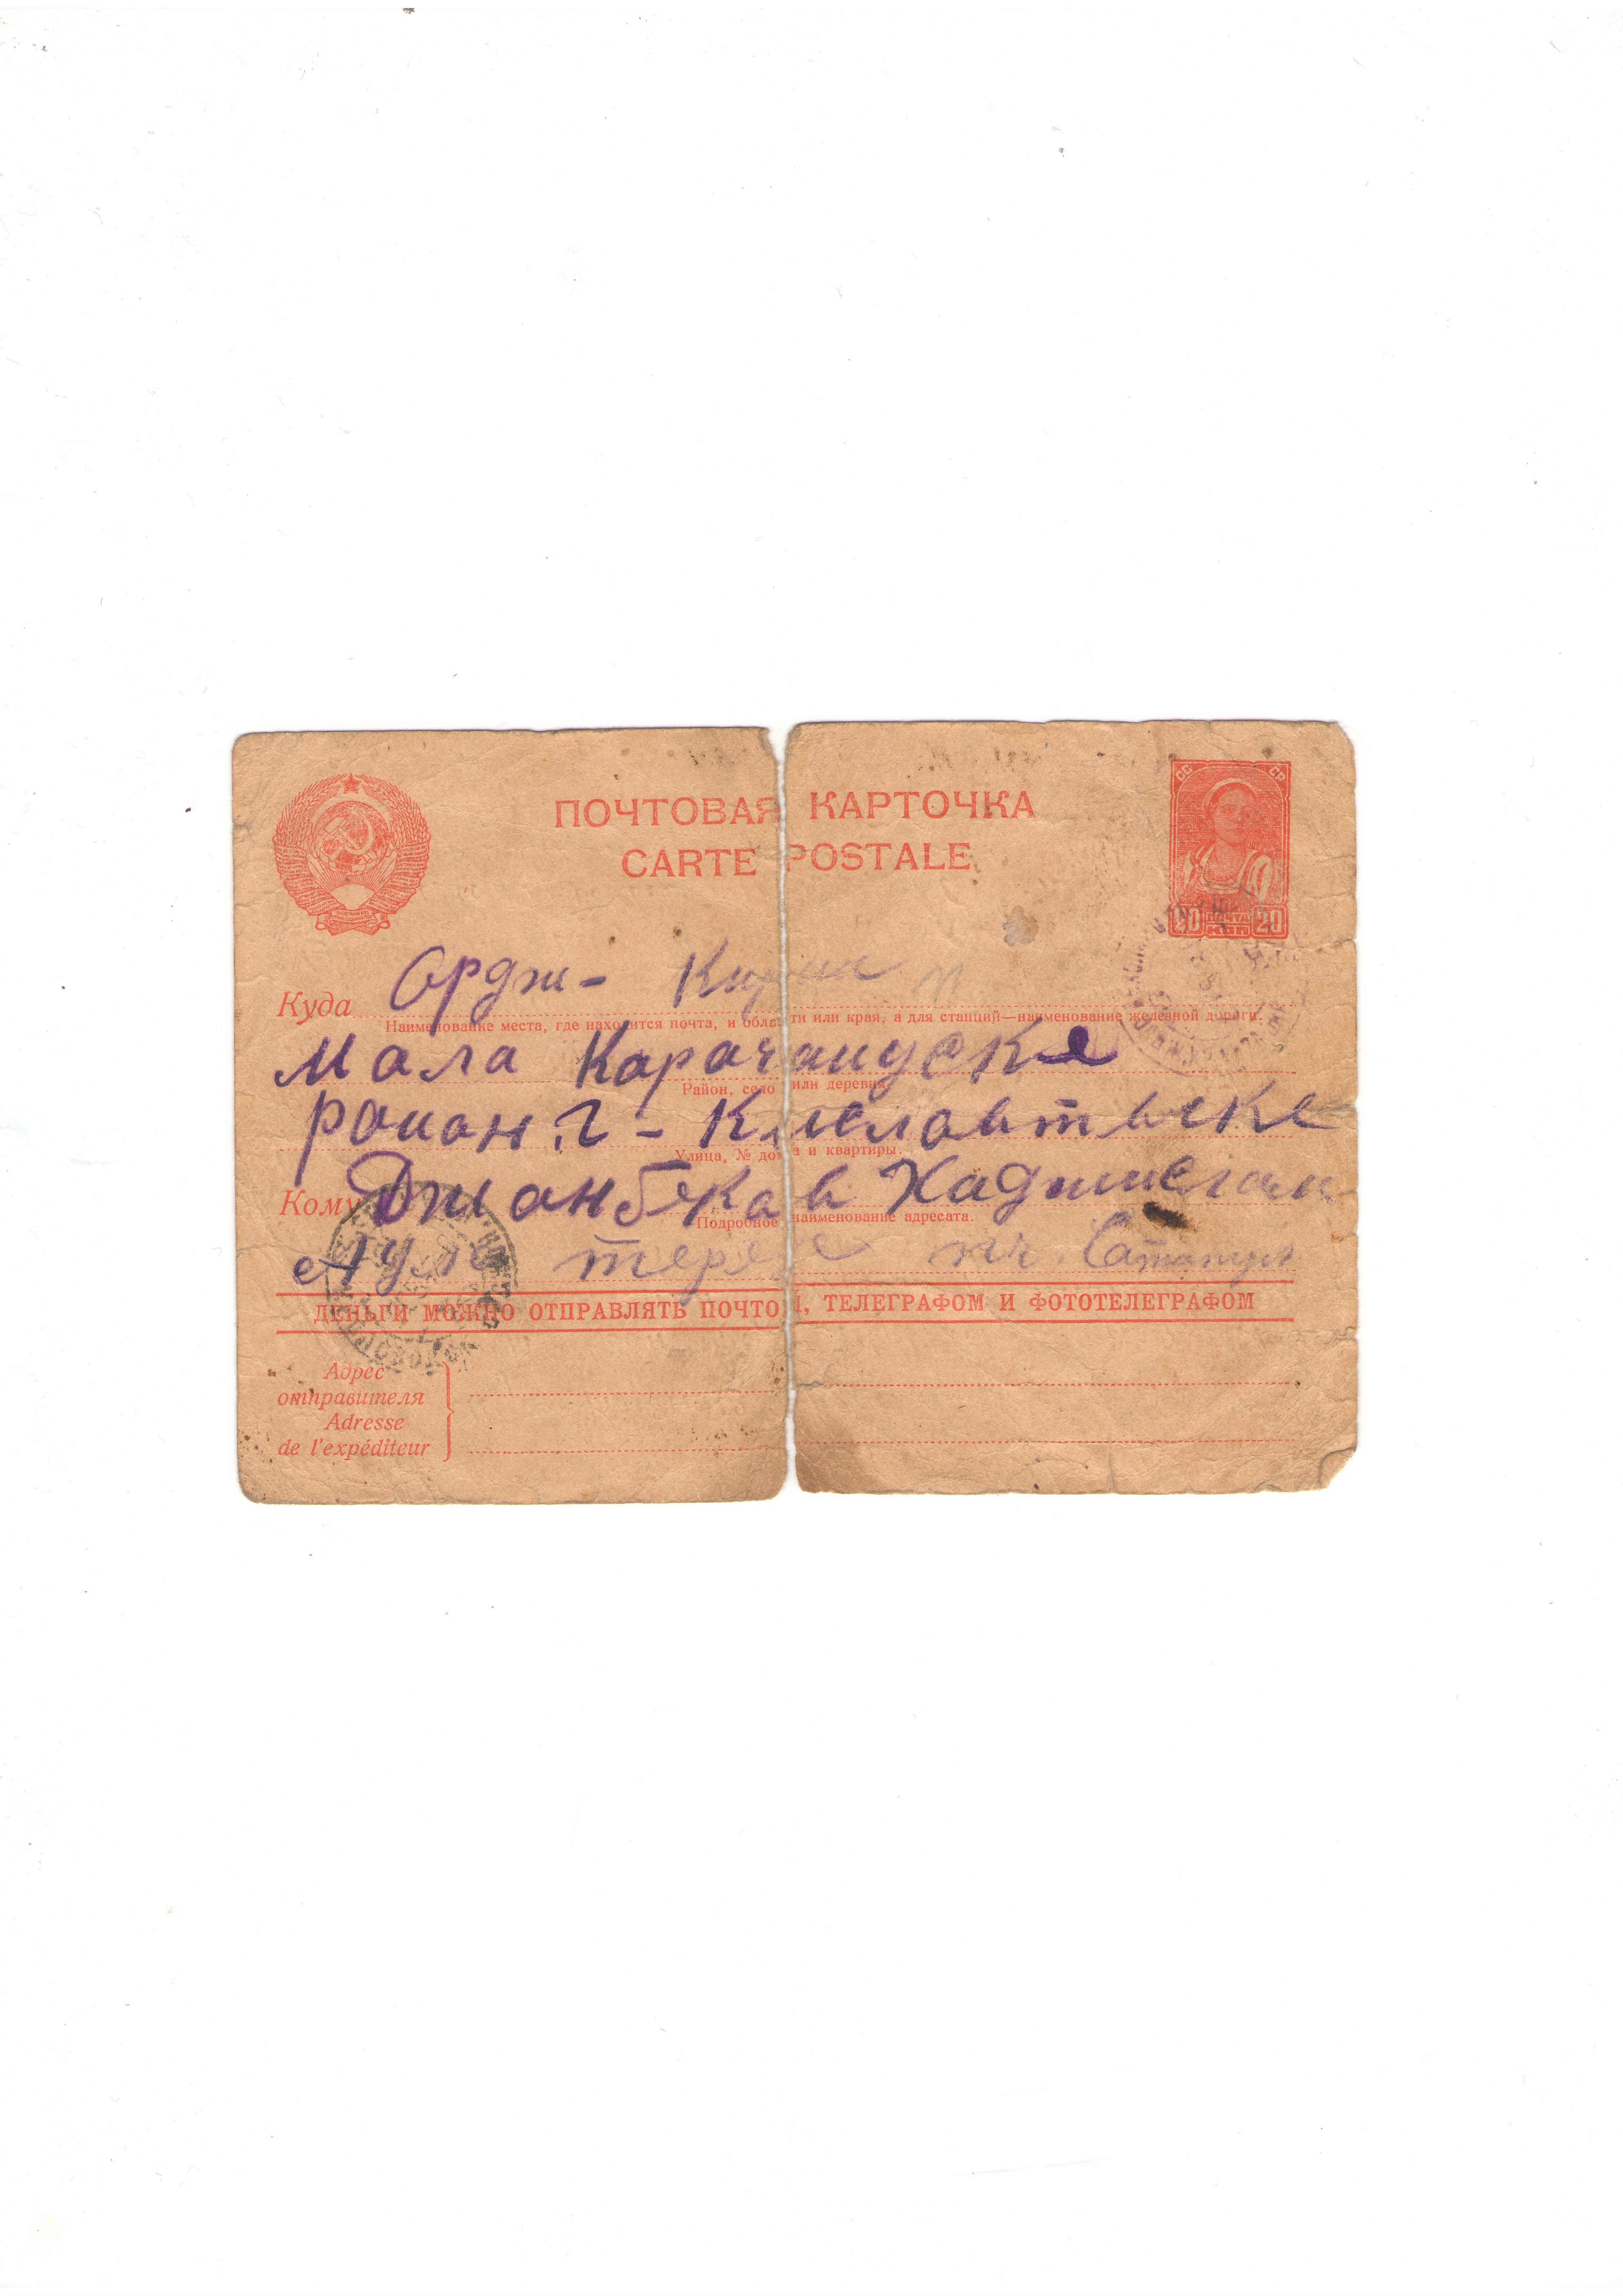 СС СР
ПОЧТОВАЯ КАРТОЧКА
CARTE POSTALE
20 ПОЧТА КОП 20
Куда Ордж-
Наименование места, где находится почта, и области или края, а для станций—наименование железной дороги.
Мала Карачаиуске
Район, село или деревня.
раион. г - Кисловтвске
Улица, № дома и квартиры.
Кому Джанбека в
Подробное наименование адресата.
Аул
ДЕНЬГИ МОЖНО ОТПРАВЛЯТЬ ПОЧТОЙ, ТЕЛЕГРАФОМ И ФОТОТЕЛЕГРАФОМ
Адрес
отправителя
Adresse
de l'expéditeur